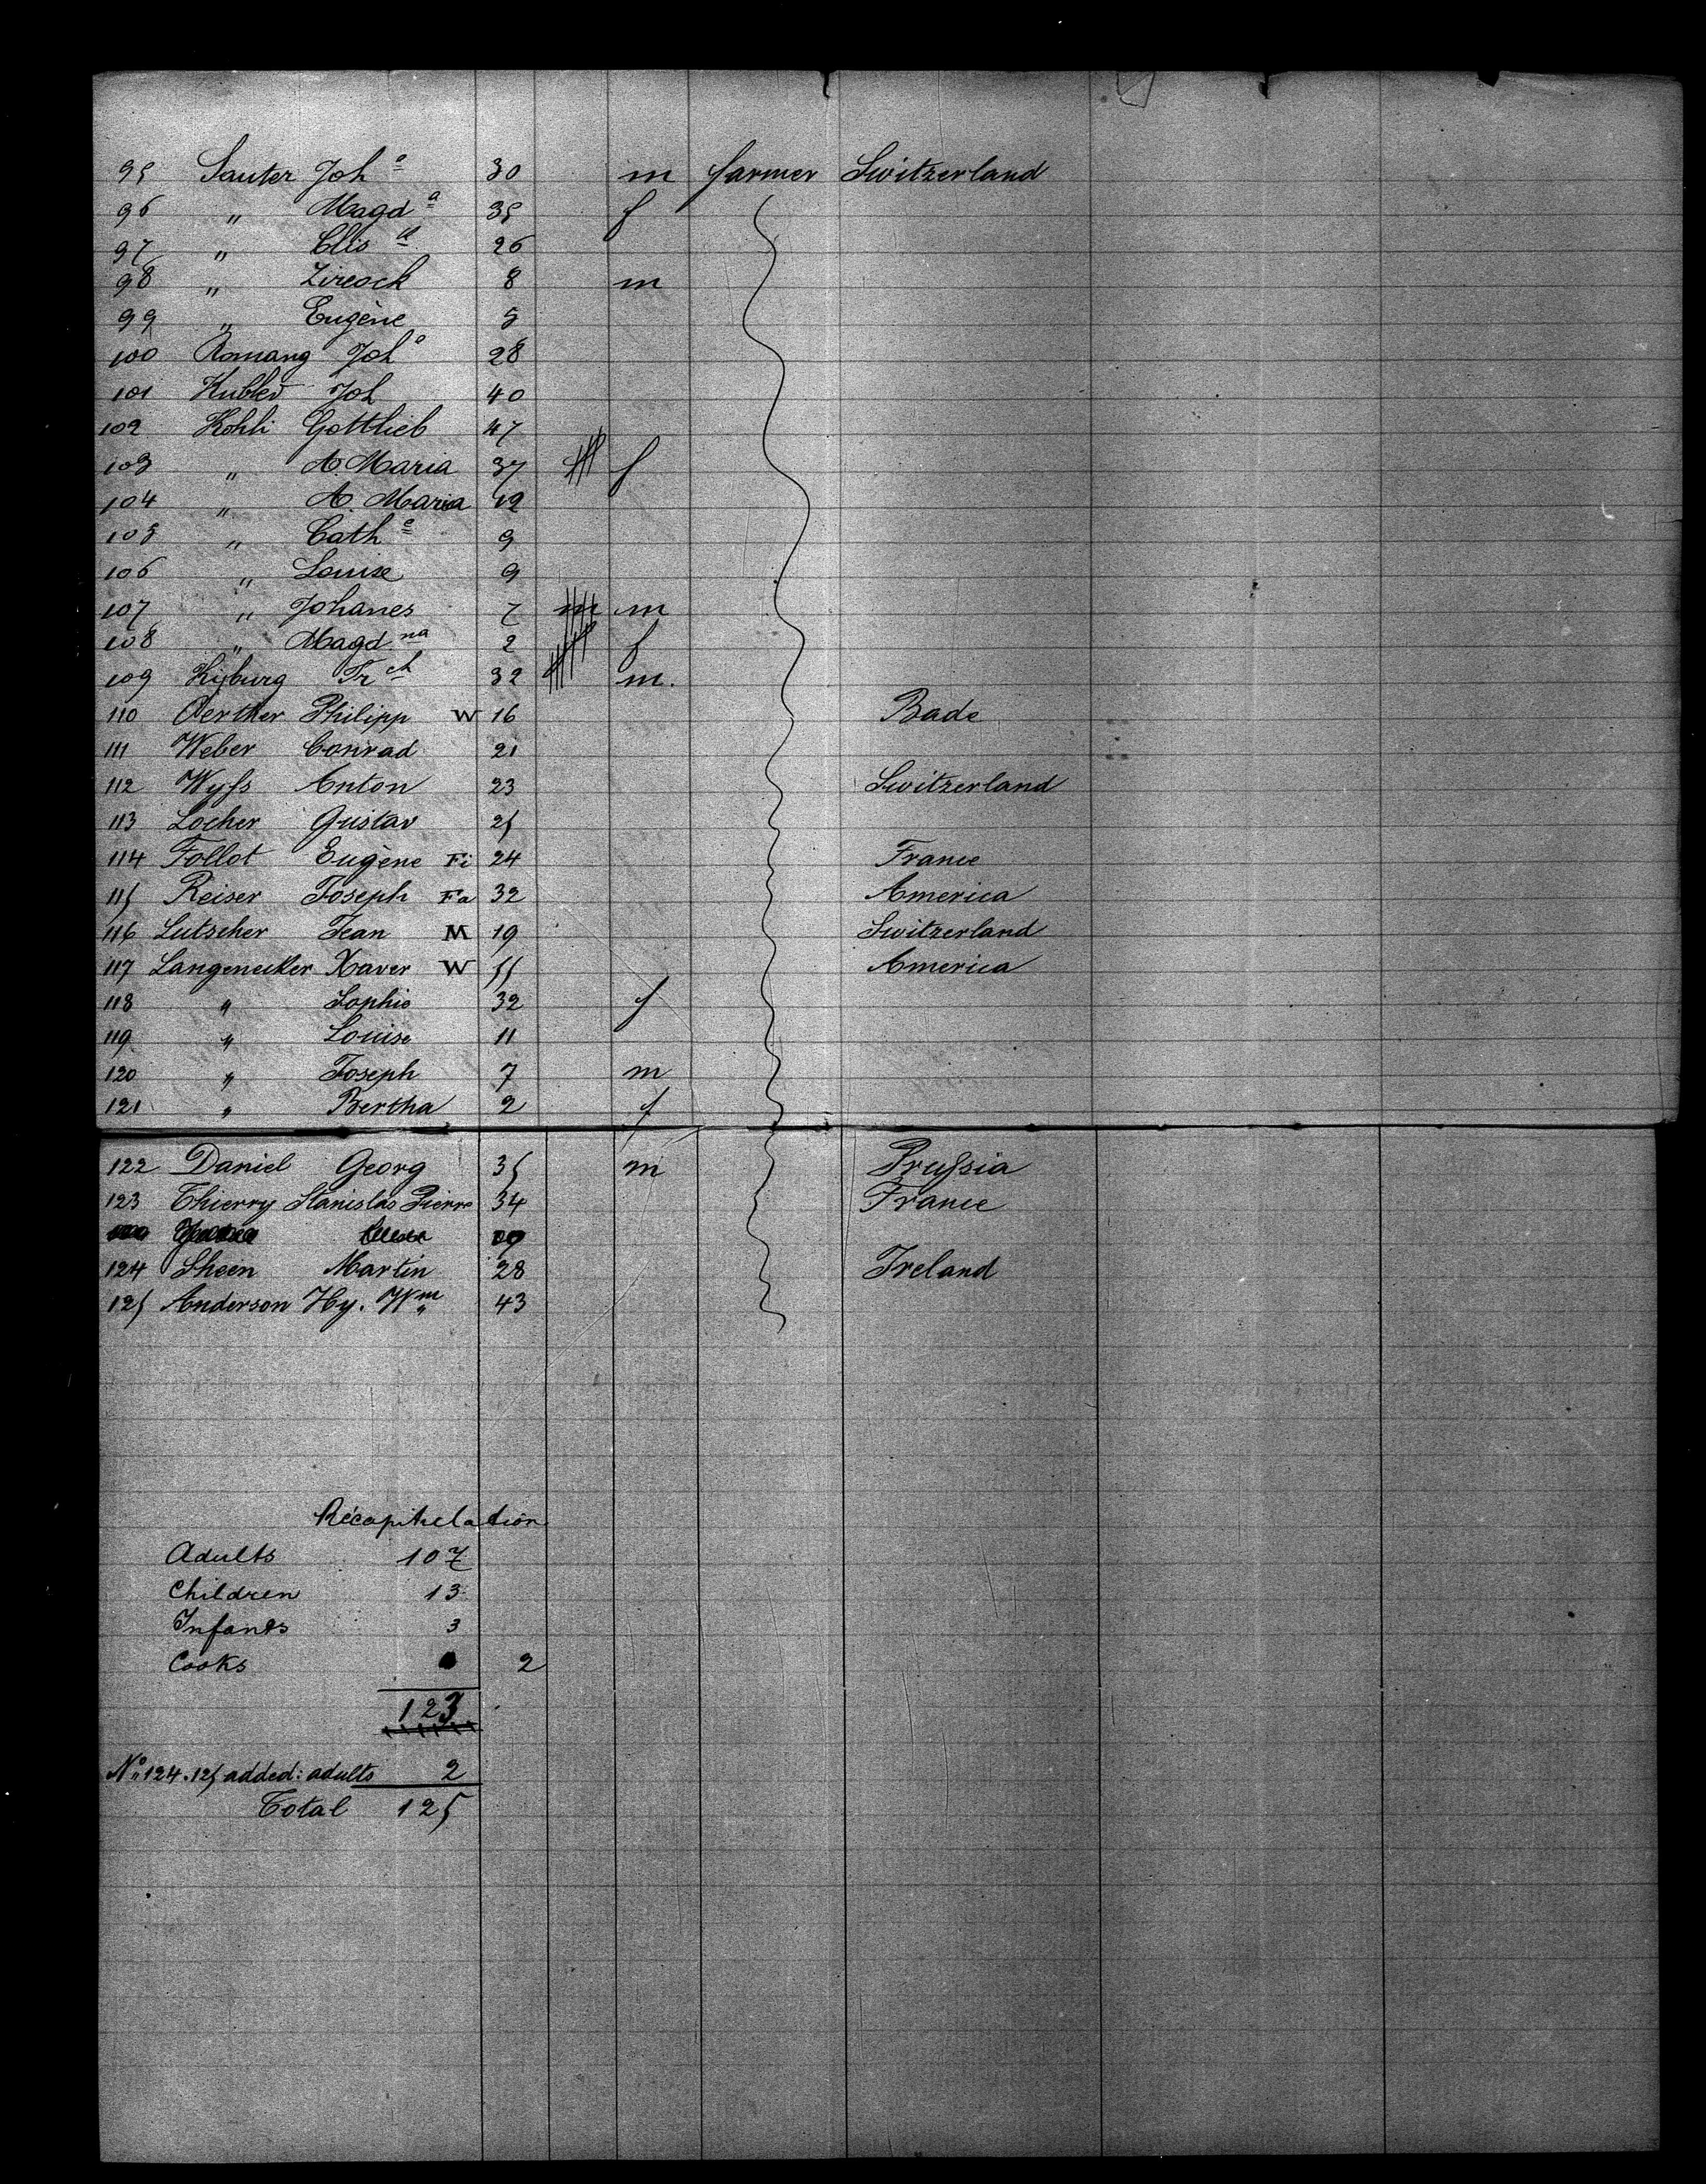 95 Sauter Joh º 30 m farmer Switzerland
96 " Magd ª 35 f
97 " Elis 26
98 " 8 m
99 " Eugène 5
100 Romang Joh º 28
101 Kubler Joh 40
102 Kohli Gottlieb 47
103 " A. Maria 37 f
104 " A. Maria 12
105 " Cath e 9
106 " Louise 9
107 " Johanes 7 m
108 " Magd na 2 f
109 Kyburg Fr ch 32 m.
110 Oerther Philipp W 16 Bade
111 Weber Conrad 21
112 Wyſs Anton 23 Switzerland
113 Locher Gustav 25
114 Follot Eugène Fi 24 France
115 Reiser Joseph Fa 32 America
116 Lutscher Jean M 19 Switzerland
117 Langenecker Xaver W 55 America
118 " Sophie 32 f
119 " Louise 11
120 " Joseph 7 m
121 " Bertha 2 f
122 Daniel Georg 35 m Pruſsia
123 Thierry Stanislas Pierre 34 France
124 Sheen Martin 28 Ireland
125 Anderson Hy. Wm 43
Récapitulation
Adults 107
Children 13
Infants 3
Cooks 2
123
No 124.125 added: adults 2
Total 125